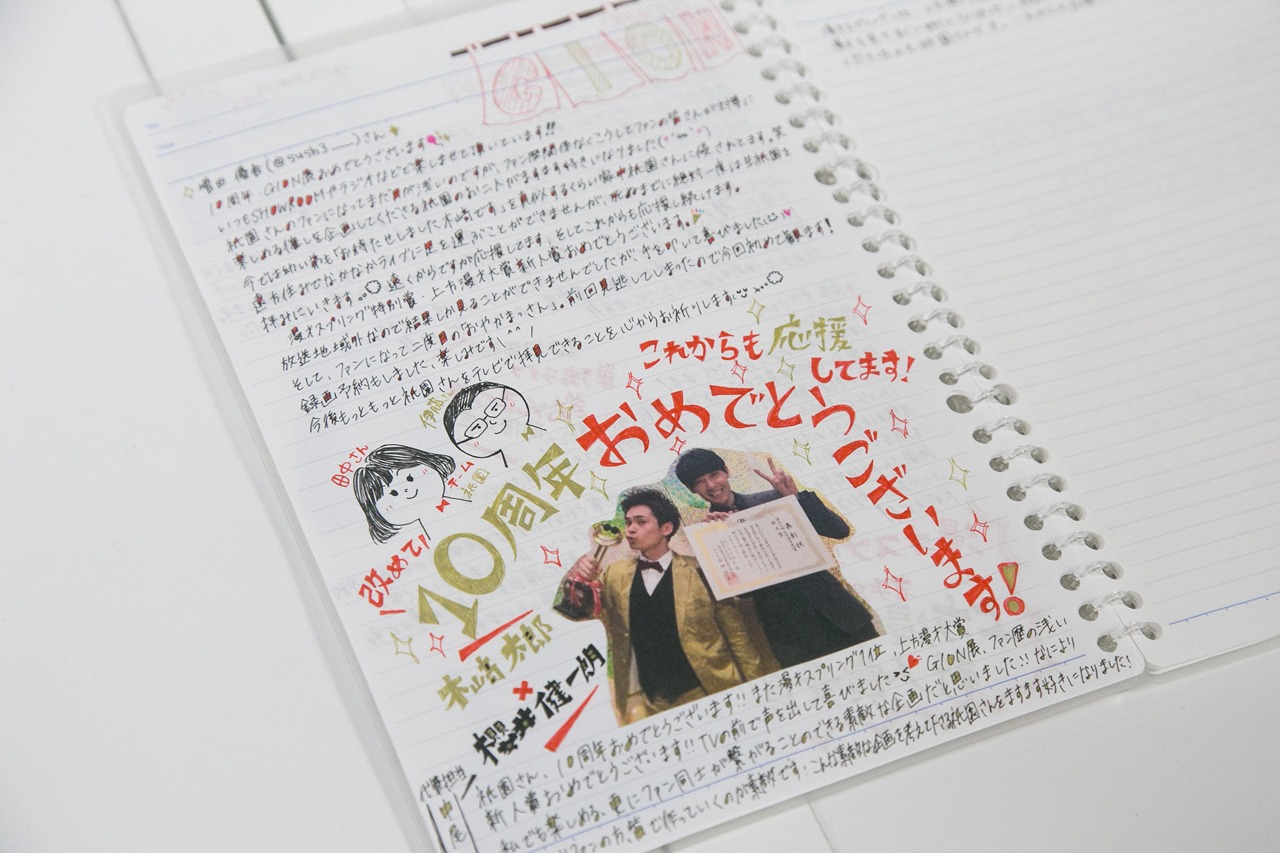 GION
(@sush3__)さん
10周年 GION展おめでとうございます
いつもSHOWROOMやラジオなどで楽しませて頂いています!!
祇園さんのファンになってまだ日が浅いのですが、ファン歴関係なくこうしてファンの皆さんが対等に
楽しめる催しを企画してくださる祇園のお二人がますます好きになりました
今では幼い弟も「お待たせしました木﨑です」を真似するくらい家中祇園さんに侵されてます。笑
遠方住みでなかなかライブに足を運ぶことができませんが、死ぬまでに絶対一度は生祇園を
拝みにいきます...遠くからですが応援してます。そしてこれからも応援し続けてます。
漫才スプリング特別賞、上方漫才大賞新人賞おめでとうございます。
放送地域外なので結果しか見ることができませんでしたが、手を叩いて喜びました
そして、ファンになって二度目の「おやかまっさん」。前回見逃してしまったので今回初めて観ます!
録画予約もしました、楽しみです
今後もっともっと祇園さんをテレビで拝見できることを心からお祈りします
これからも応援
してます!
伊藤
田中さん
チーム
祇園
おめでとう
ございます!
改めて!
10周年
木﨑太郎
×
櫻井健一朗
表彰状
祇園さん、10周年おめでとうございます!! また漫才スプリング1位、上方漫才大賞
新人賞おめでとうございます!! TVの前で声を出して喜びました GION展、ファン歴の浅い
私でも楽しめる、更にファン同士が繋がることのできる素敵な企画だと思いました!! なにより
ファンの方、皆で作っていくのが素敵です! こんな素敵な企画を考えて下さる祇園さんをますます好きになりました!
代筆担当
中尾